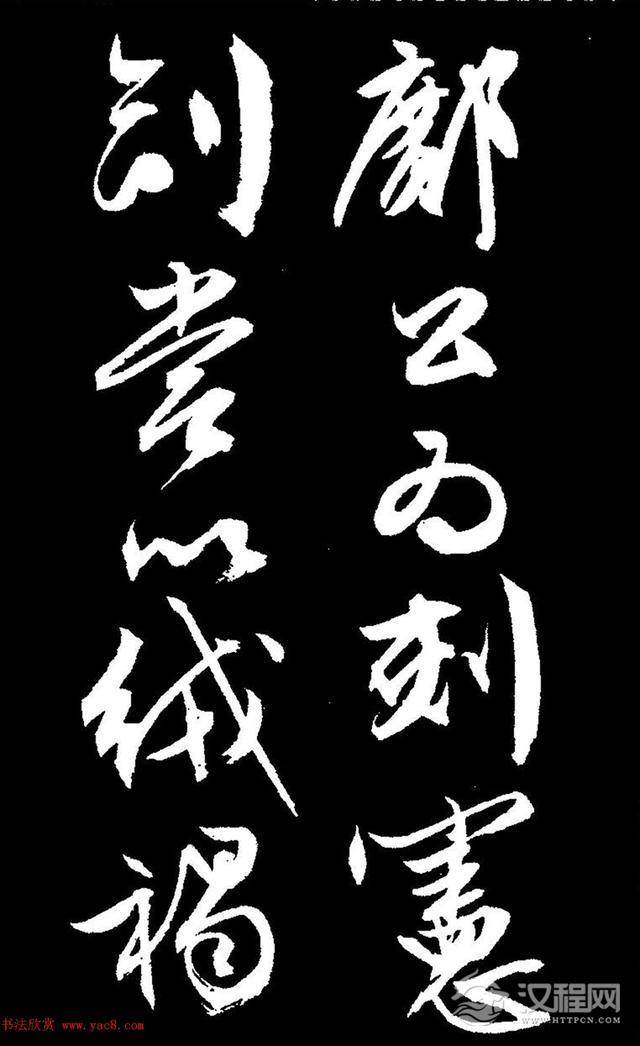 鄺公为刺憲
嘗以絨褐
书法欣赏 www.yac8.com
汉程网
WWW.HTTPCN.COM